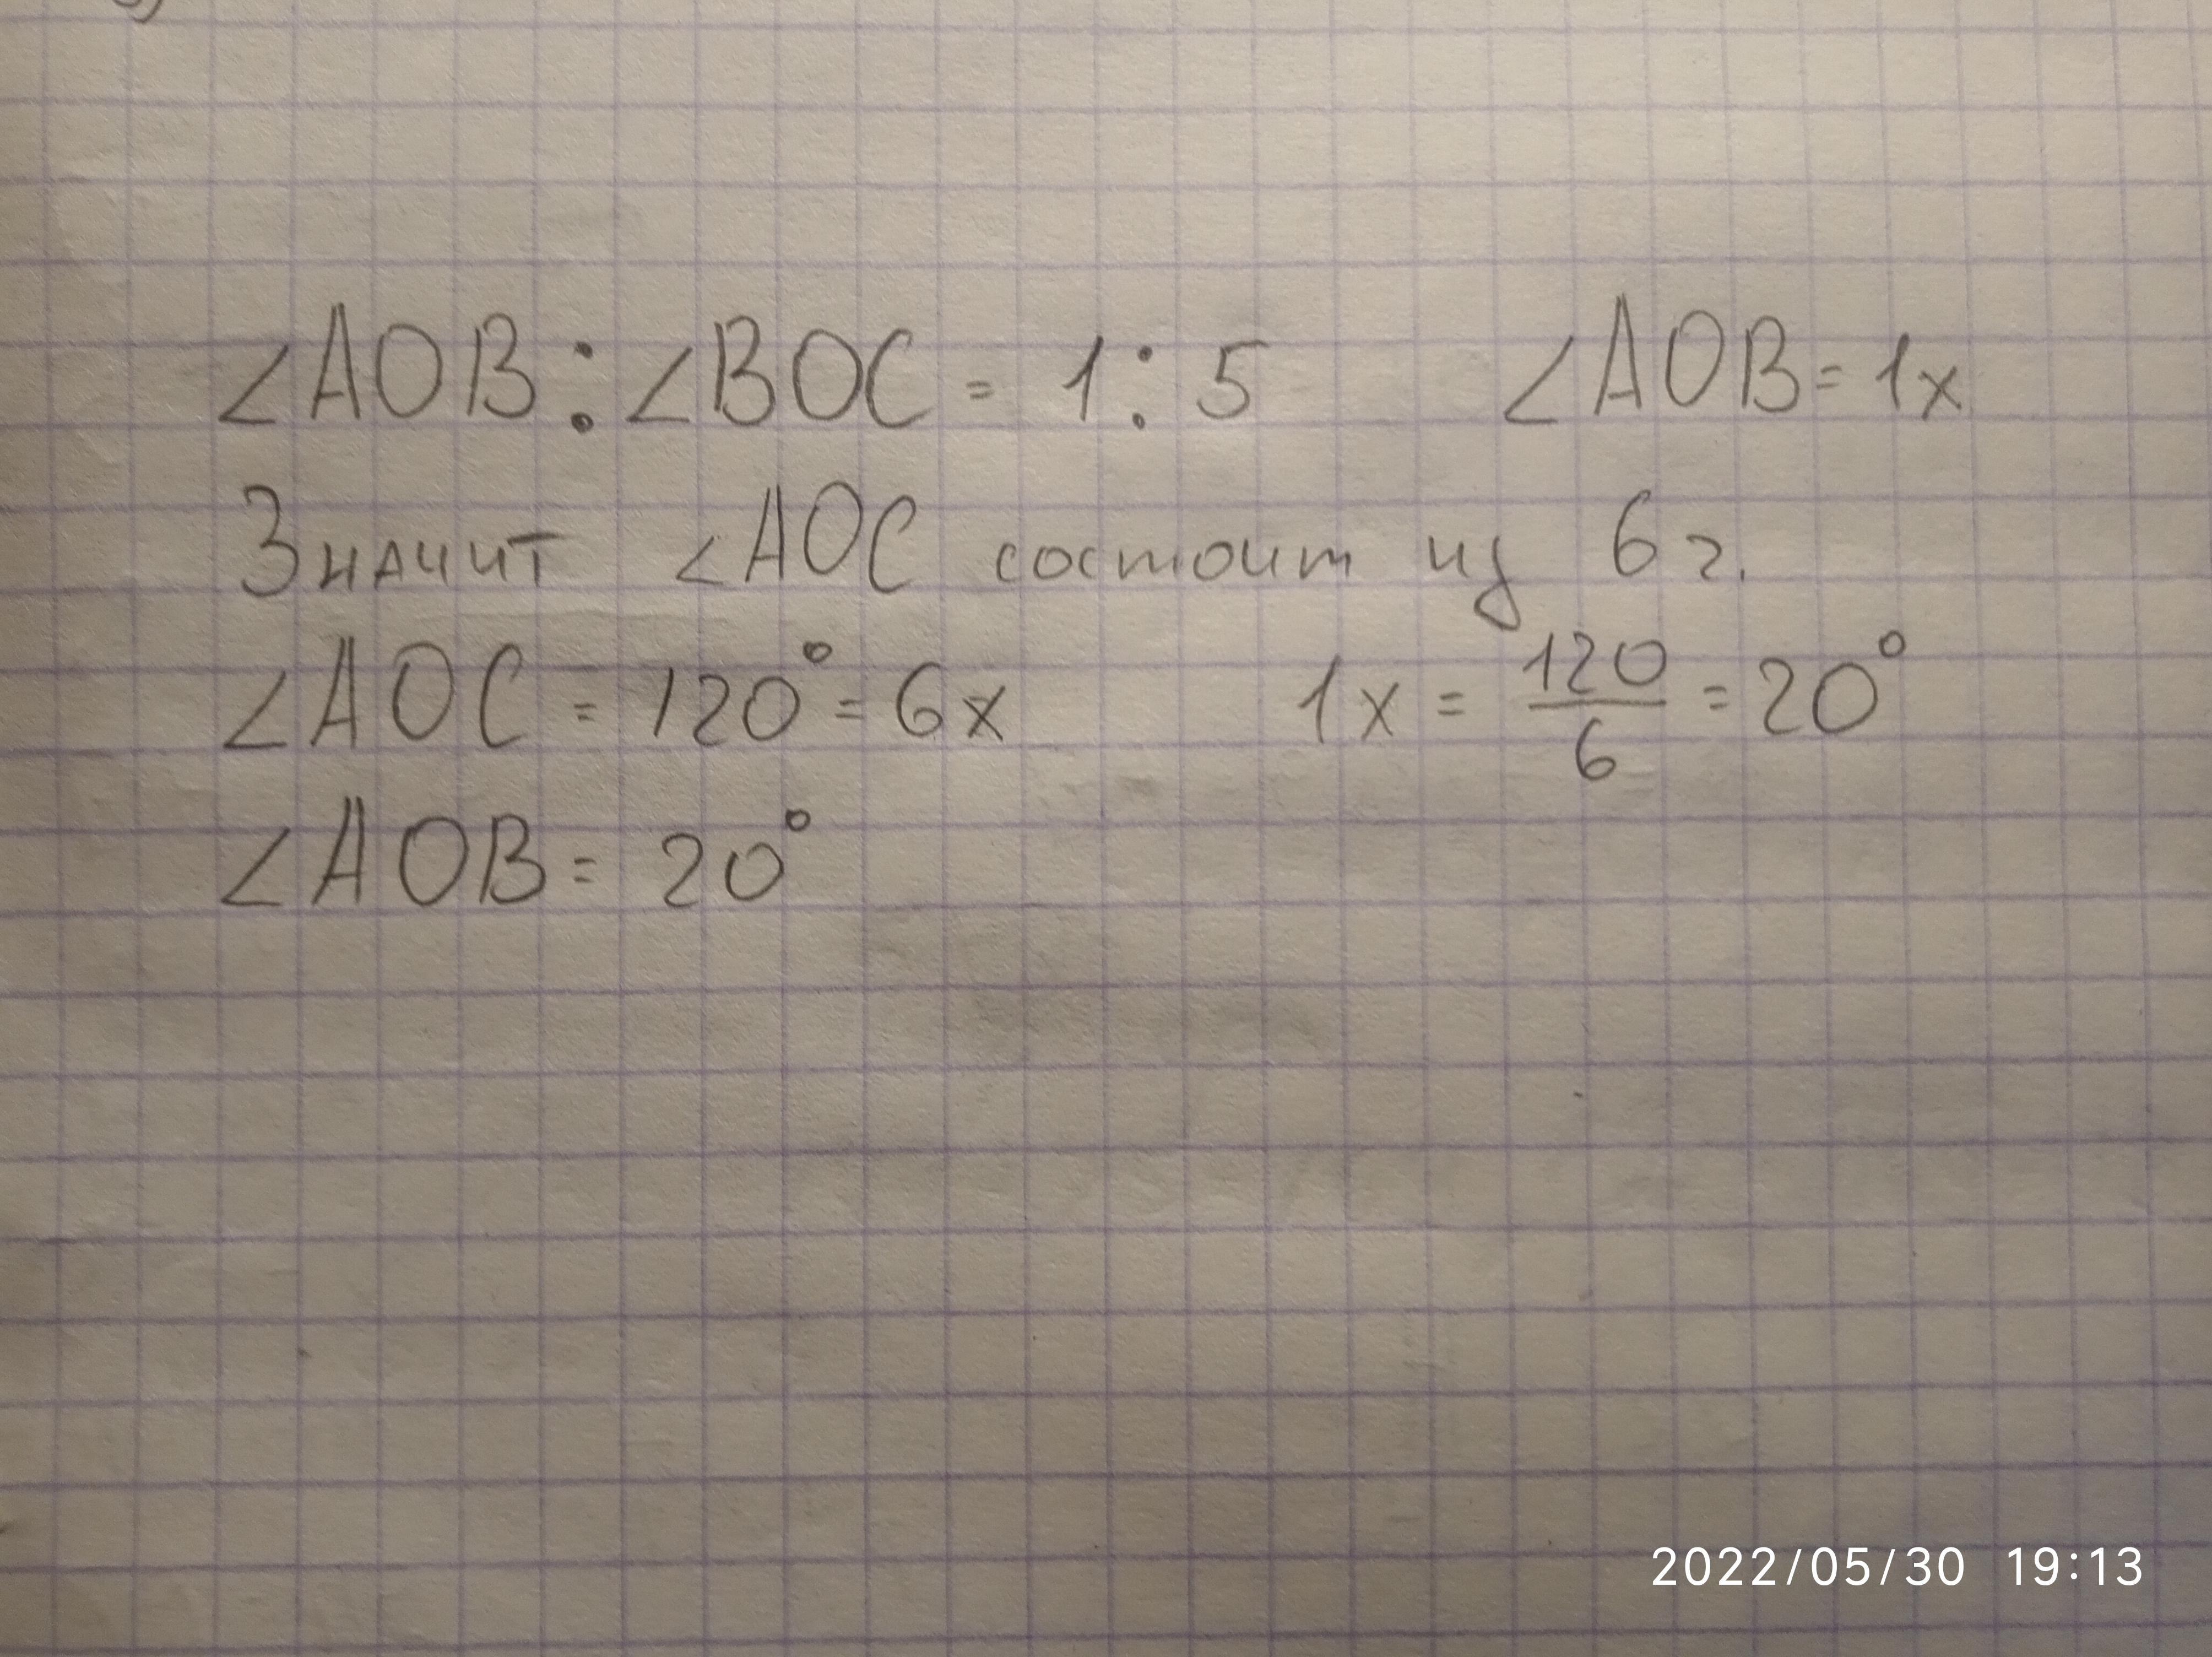 ∠AOB : ∠BOC = 1 : 5 ∠AOB = 1x
Значит ∠AOC состоит из 6 ч.
∠AOC = 120° = 6x 1x = 120/6 = 20°
∠AOB = 20°
2022/05/30 19:13